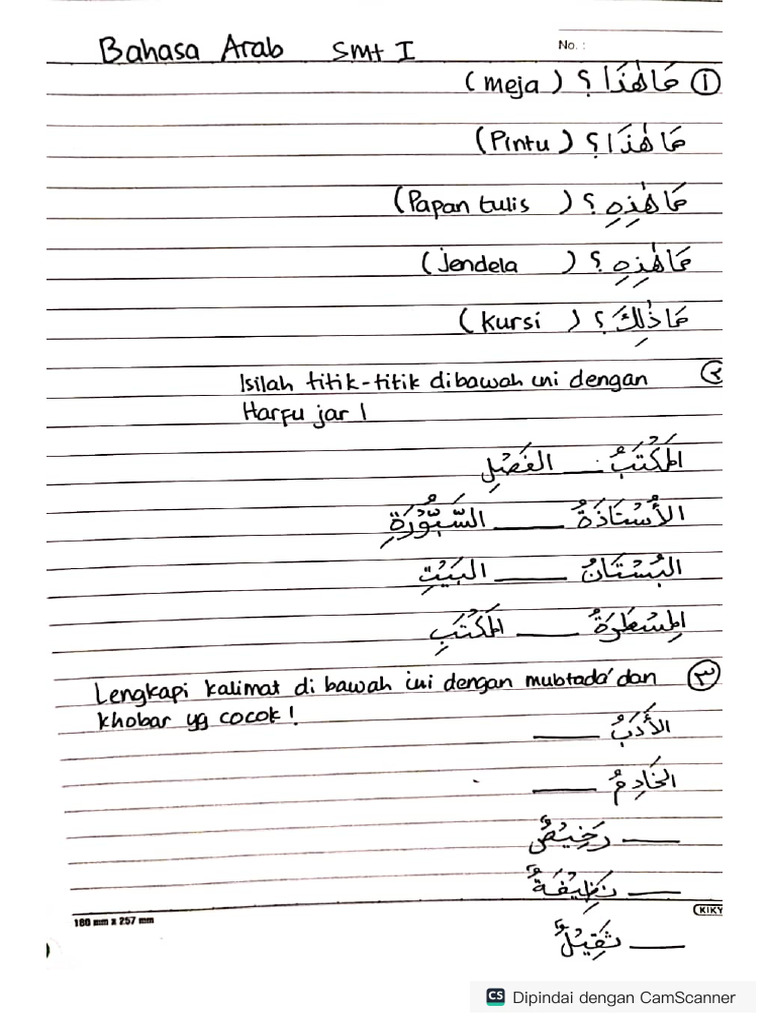 Bahasa Arab Smt I
No. :
① مَا هٰذَا ؟ ( meja )
مَا هٰذَا ؟ ( Pintu )
مَا هٰذِهِ ؟ ( Papan tulis )
مَا هٰذِهِ ؟ ( Jendela )
مَا ذٰلِكَ ؟ ( Kursi )
② Isilah titik-titik dibawah ini dengan
Harfu jar !
المَكْتَبُ ____ الفَصْلِ
الأُسْتَاذَةُ ____ السَّبُّوْرَةِ
البُسْتَانُ ____ البَيْتِ
المِسْطَرَةُ ____ المَكْتَبِ
③ Lengkapi kalimat di bawah ini dengan mubtada' dan
khobar yg cocok !
الأَدَبُ ____
الخَادِمُ ____
____ رَخِيْصٌ
____ نَظِيْفَةٌ
180 mm x 257 mm
KIKY
____ ثَقِيْلٌ
CS Dipindai dengan CamScanner